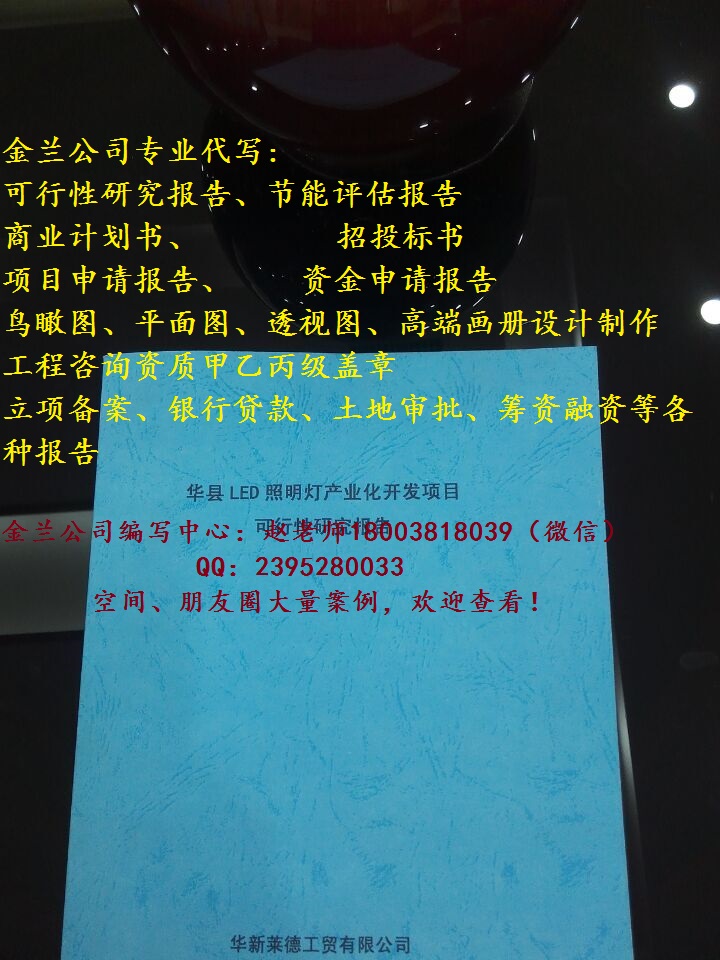 金兰公司专业代写：
可行性研究报告、节能评估报告
商业计划书、 招投标书
项目申请报告、 资金申请报告
鸟瞰图、平面图、透视图、高端画册设计制作
工程咨询资质甲乙丙级盖章
立项备案、银行贷款、土地审批、筹资融资等各
种报告
华县LED照明灯产业化开发项目
可行性研究报告
金兰公司编写中心：赵老师18003818039（微信）
QQ：2395280033
空间、朋友圈大量案例，欢迎查看！
华新莱德工贸有限公司